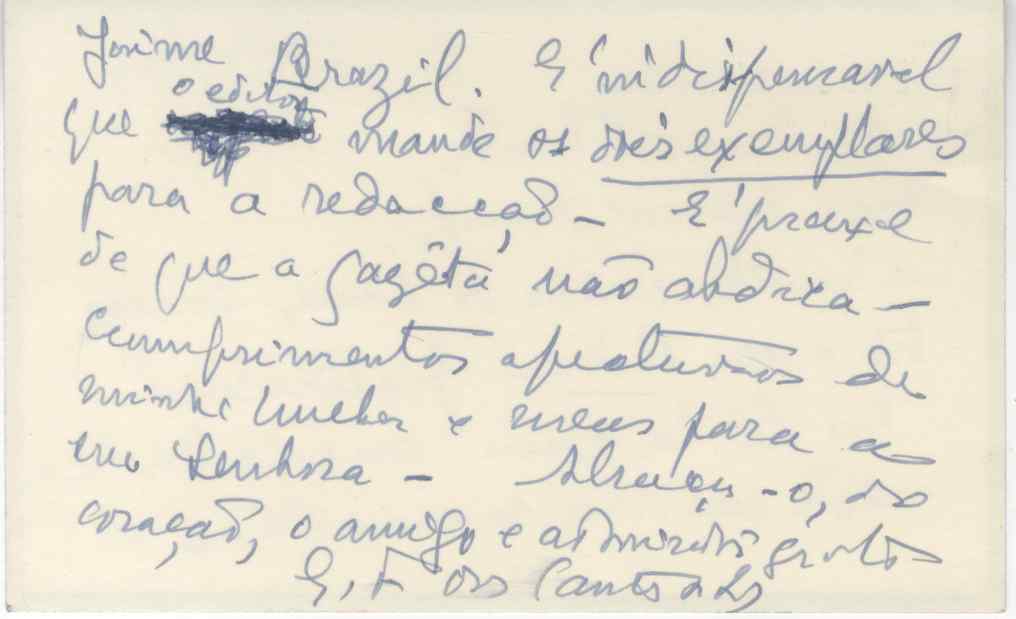 Jaime Brazil. E' indispensavel
o editor
que mande os dois exemplares
para a redacção – E' praxe
de que a gazêta não abdica –
Cumprimentos afectuosos de
minha mulher e meus para a
sua Senhora – Abraça-o, do
coração, o amigo e admirador grato